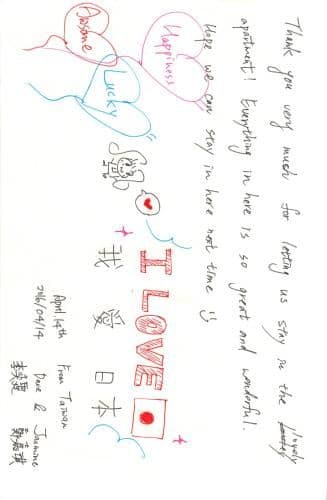 Thank you very much for letting us stay in the lovely
apartment! Everything in here is so great and wonderful.
Hope we can stay in here next time
Happiness
Awsome
Lucky
I LOVE
我 愛 日本
From Taiwan
April 14th
Dave & Jasmine
2016/04/14